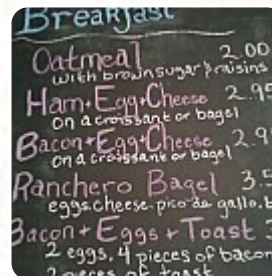 Breakfast
Oatmeal 2.00
with brown sugar & raisins
Ham + Egg + Cheese 2.95
on a croissant or bagel
Bacon + Egg + Cheese 2.9
on a croissant or bagel
Ranchero Bagel 3.5
eggs.cheese.pico de gallo.
Bacon + Eggs + Toast
2 eggs, 4 pieces of bacon
2 pieces of toast